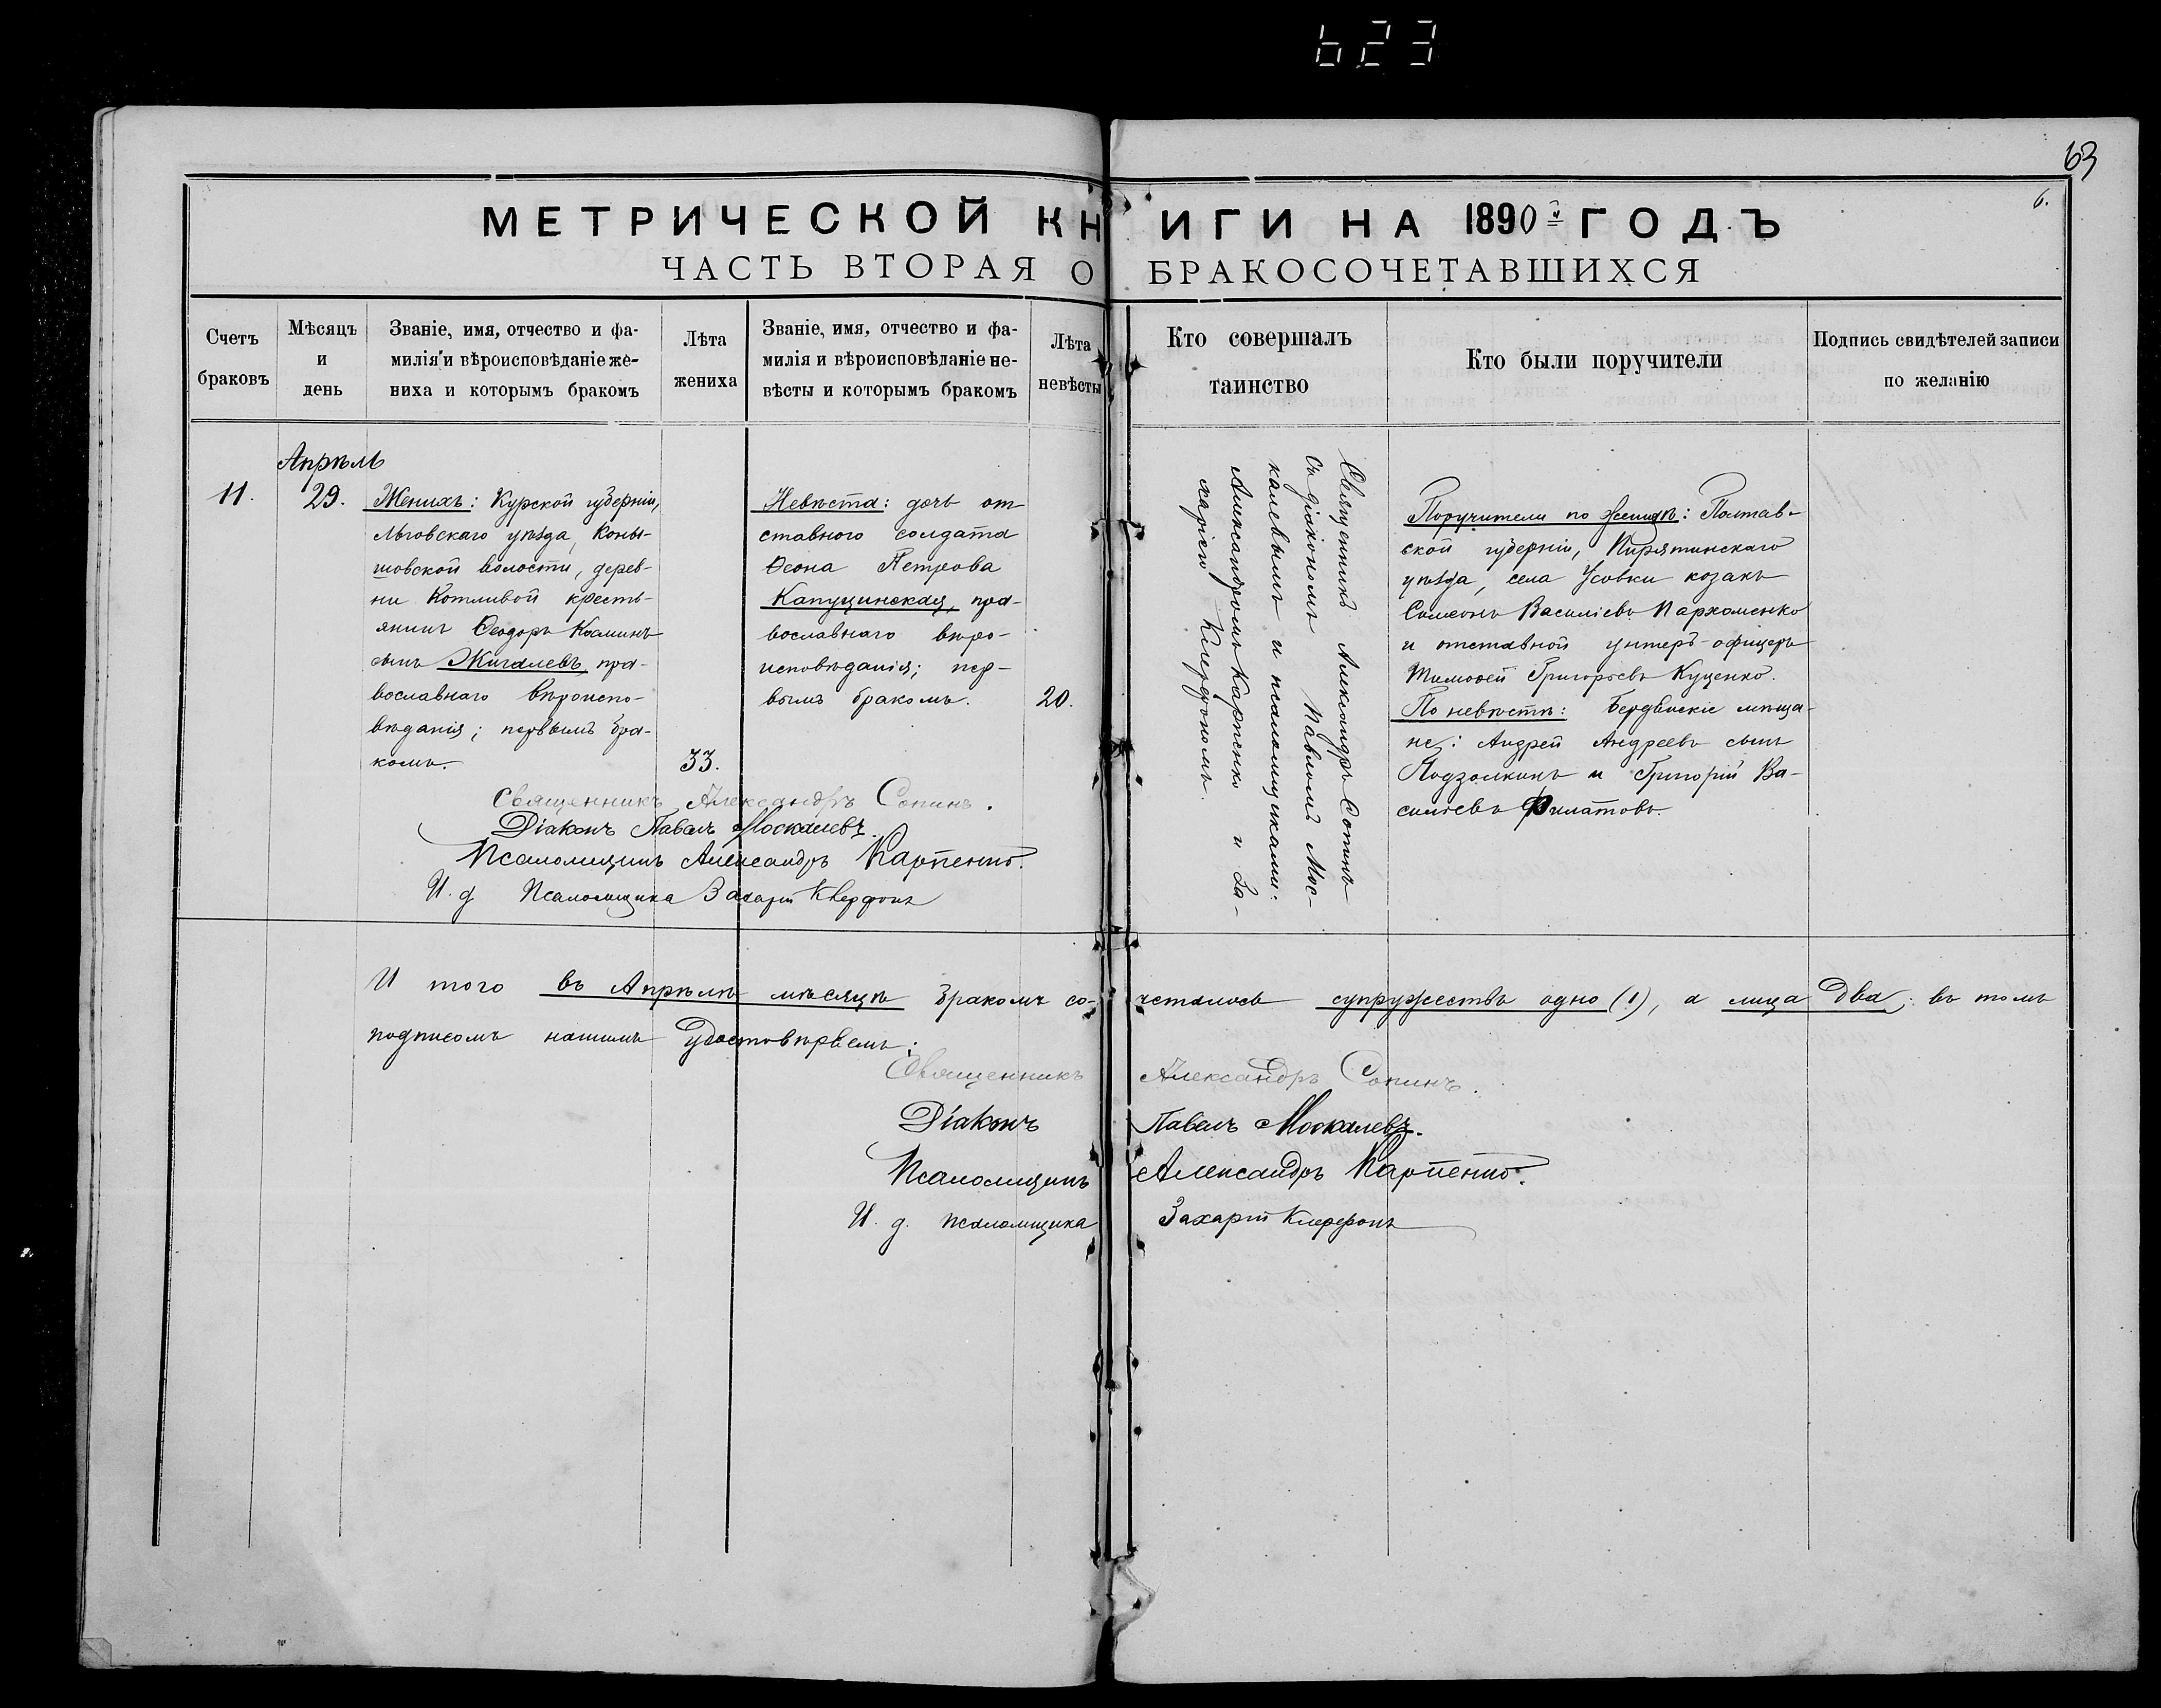 623
63
6.
МЕТРИЧЕСКОЙ КНИГИ НА 1890й ГОДЪ
ЧАСТЬ ВТОРАЯ О БРАКОСОЧЕТАВШИХСЯ
Счетъ
браковъ
Мѣсяцъ
и
день
Званіе, имя, отчество и фа-
милія и вѣроисповѣданіе же-
ниха и которымъ бракомъ
Лѣта
жениха
Званіе, имя, отчество и фа-
милія и вѣроисповѣданіе не-
вѣсты и которымъ бракомъ
Лѣта
невѣсты
Кто совершалъ
таинство
Кто были поручители
Подпись свидѣтелей записи
по желанію
11.
Апрѣль
29.
Женихъ: Курской губерніи,
Льговскаго уѣзда, Коны-
шовской волости, дерев-
ни Котливой кресть-
янинъ Ѳеодоръ Косминъ
сынъ Жигалевъ, пра-
вославнаго вѣроиспо-
вѣданія; первымъ бра-
комъ.
33.
Невѣста: дочь от-
ставного солдата
Ѳеона Петрова
Капущинская, пра-
вославнаго вѣро-
исповѣданія; пер-
вымъ бракомъ.
20.
Священникъ Александръ Сопинъ
съ діакономъ Павломъ Мос-
калевымъ и псаломщиками:
Александромъ Карпенко и За-
харіею Клерфономъ.
Поручители по женихѣ: Полтав-
ской губерніи, Пирятинскаго
уѣзда, села Усовки козакъ
Симеонъ Василіевъ Пархоменко
и отставной унтеръ-офицеръ
Тимоѳей Григорьевъ Куценко.
По невѣстѣ: Бердянскіе мѣща-
не: Андрей Андреевъ сынъ
Подзолкинъ и Григорій Ва-
силіевъ Филатовъ.
Священникъ Александръ Сопинъ.
Діаконъ Павелъ Москалевъ.
Псаломщикъ Александръ Карпенко.
И. д. Псаломщика Захарій Клерфонъ
И того въ Апрѣлѣ мѣсяцѣ бракомъ со-четалось супружество одно (1), а лица два; въ томъ
подписомъ нашимъ удостовѣряемъ:
Священникъ Александръ Сопинъ.
Діаконъ Павелъ Москалевъ.
Псаломщикъ Александръ Карпенко.
И. д. псаломщика Захарій Клерфонъ